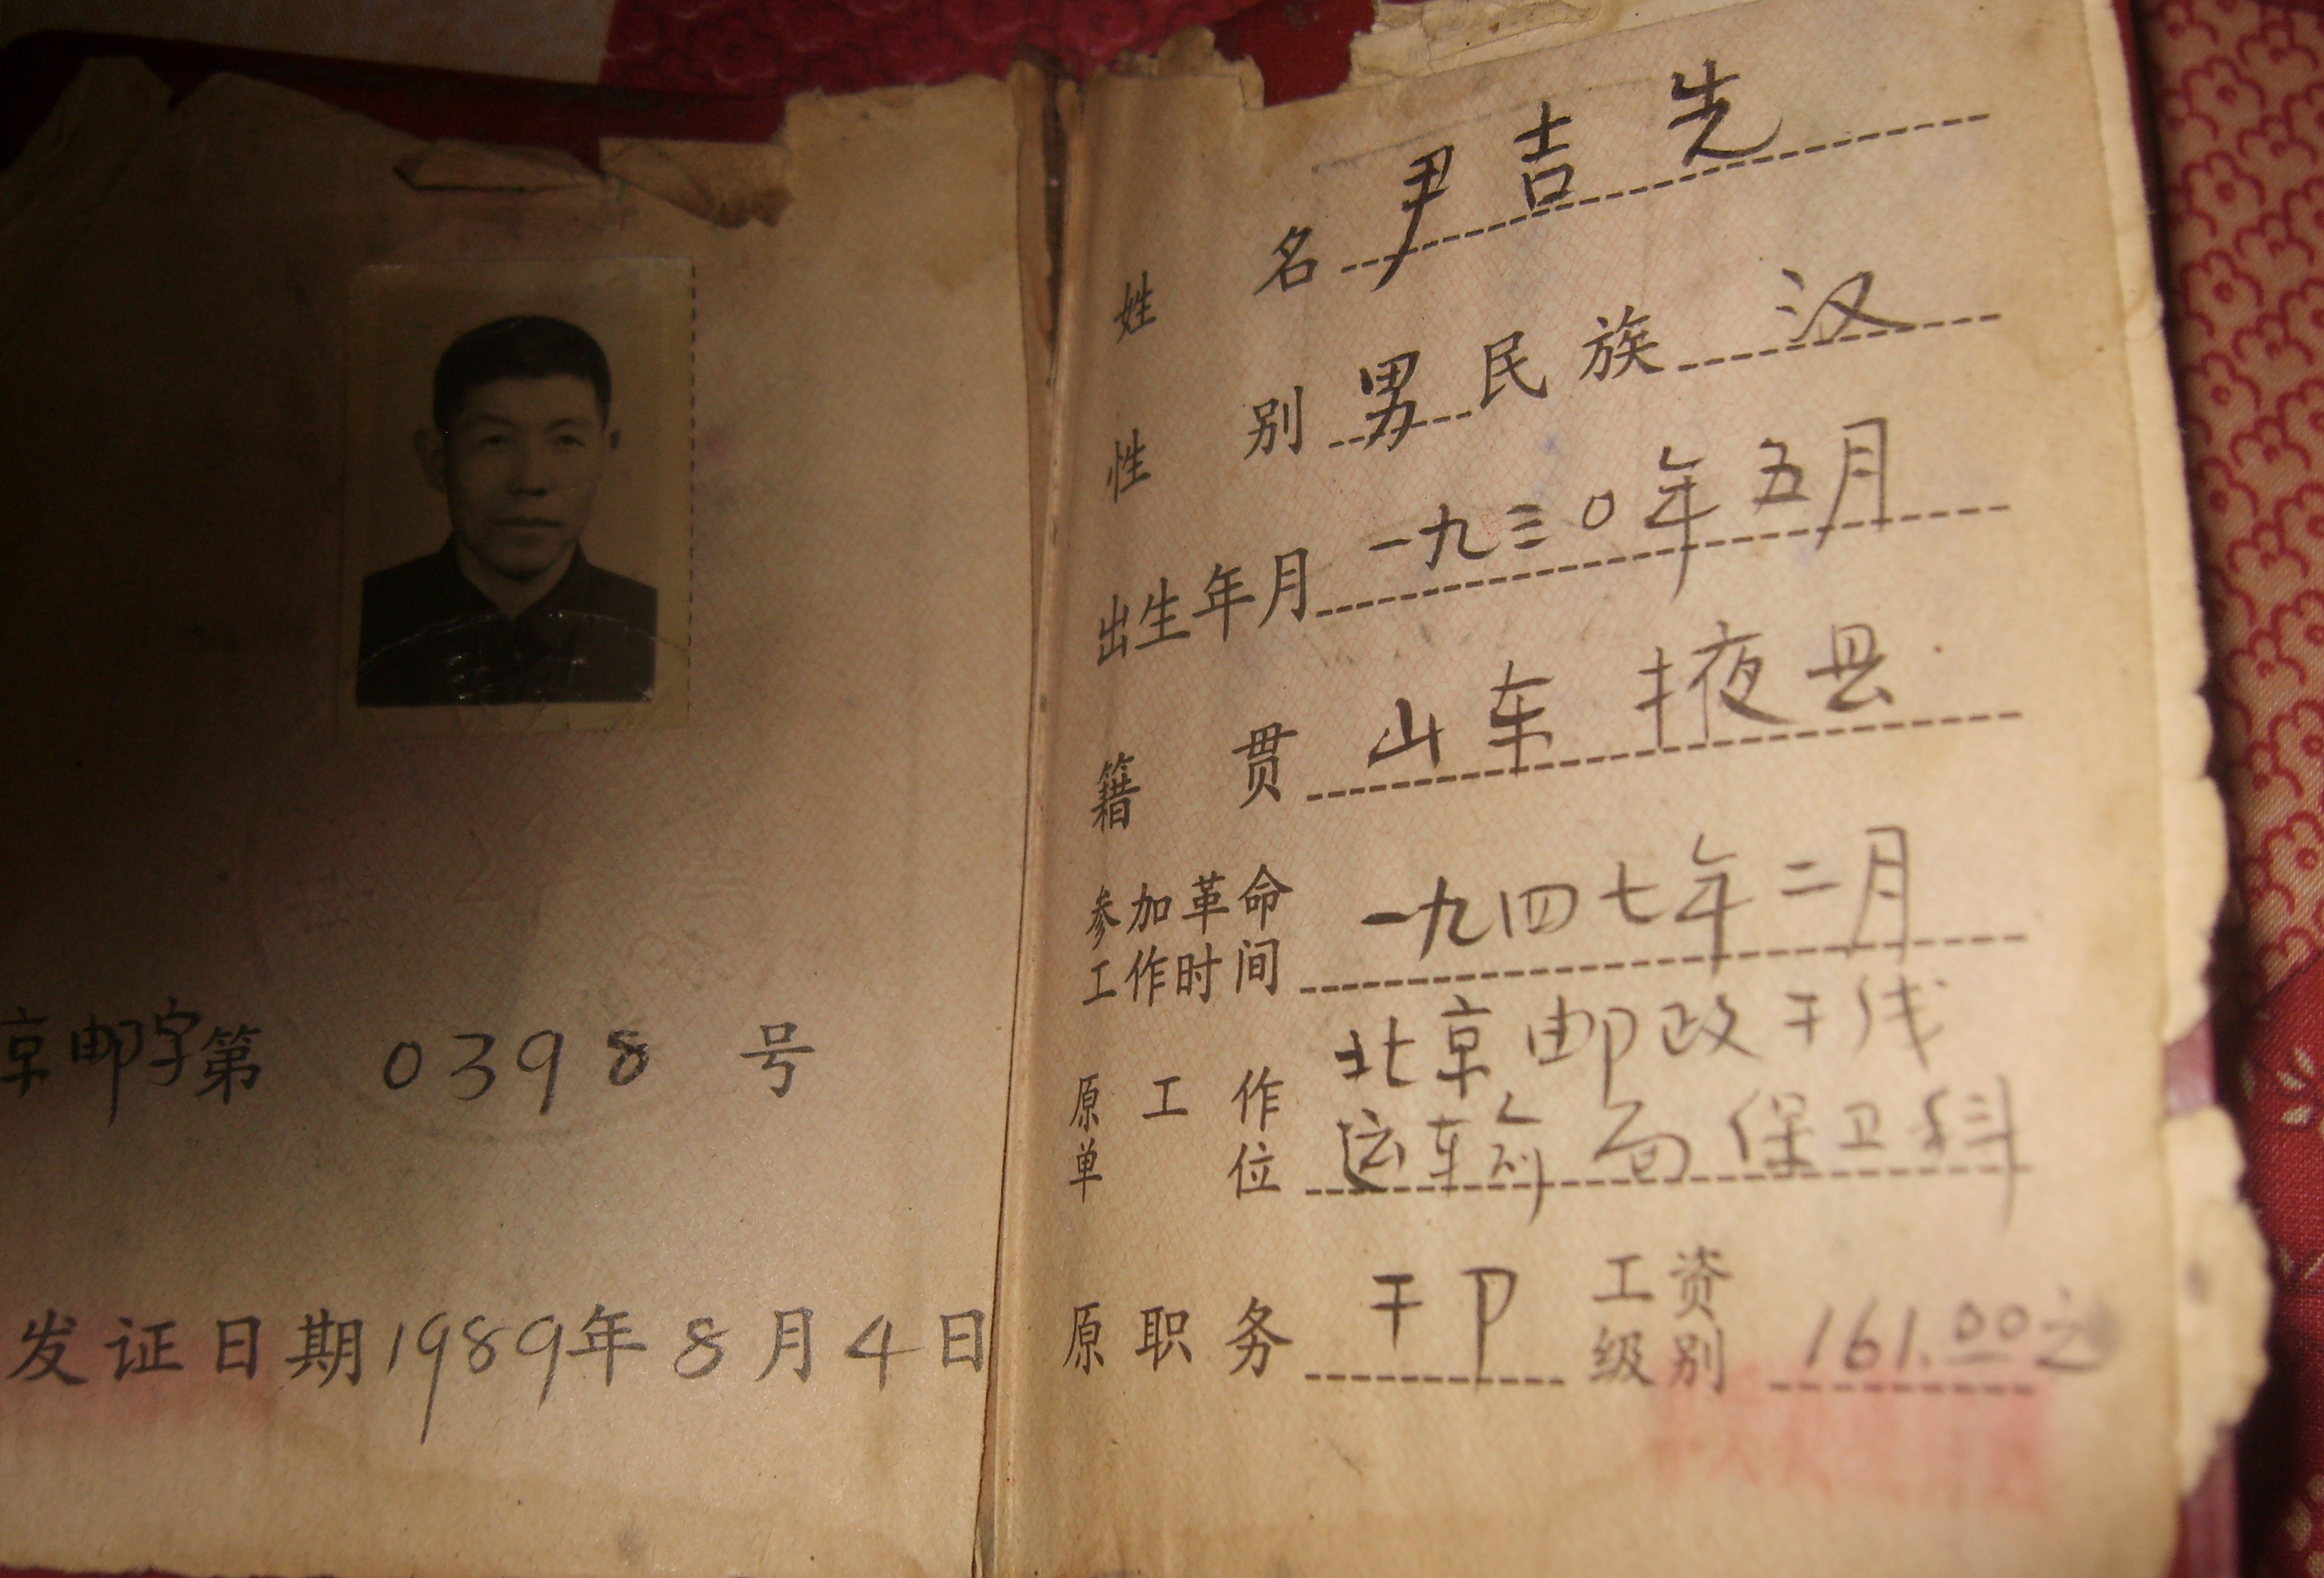 京邮字第 0398 号
发证日期1989年8月4日
姓名 尹吉先
性别 男 民族 汉
出生年月 一九三〇年五月
籍贯 山东掖县
参加革命
工作时间 一九四七年二月
原工作 北京邮政干线
单位 运输局保卫科
原职务 干卩 工资
级别 161.00元